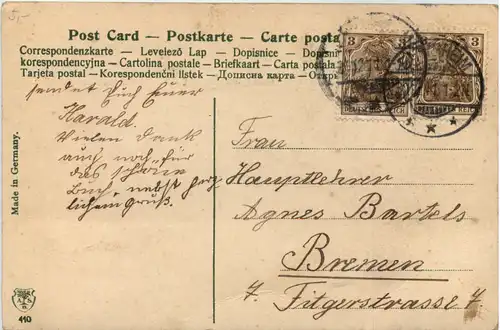 5,-
Post Card – Postkarte – Carte posta
Correspondenzkarte – Levelező Lap – Dopisnice – Dopisni
korespondencyjna – Cartolina postale – Briefkaart – Carta postala
Tarjeta postal – Korespondenčni listek – Дописна карта – Откры
3
3
DEUTSCHES REICH
sendet Euch Euer
Harald.
Vielen Dank
auch noch für
das schöne
Buch, nebst herz
lichem Gruß.
Frau
Hauptlehrer
Agnes Bartels
Bremen
7. Fitgerstrasse 7.
Made in Germany.
410